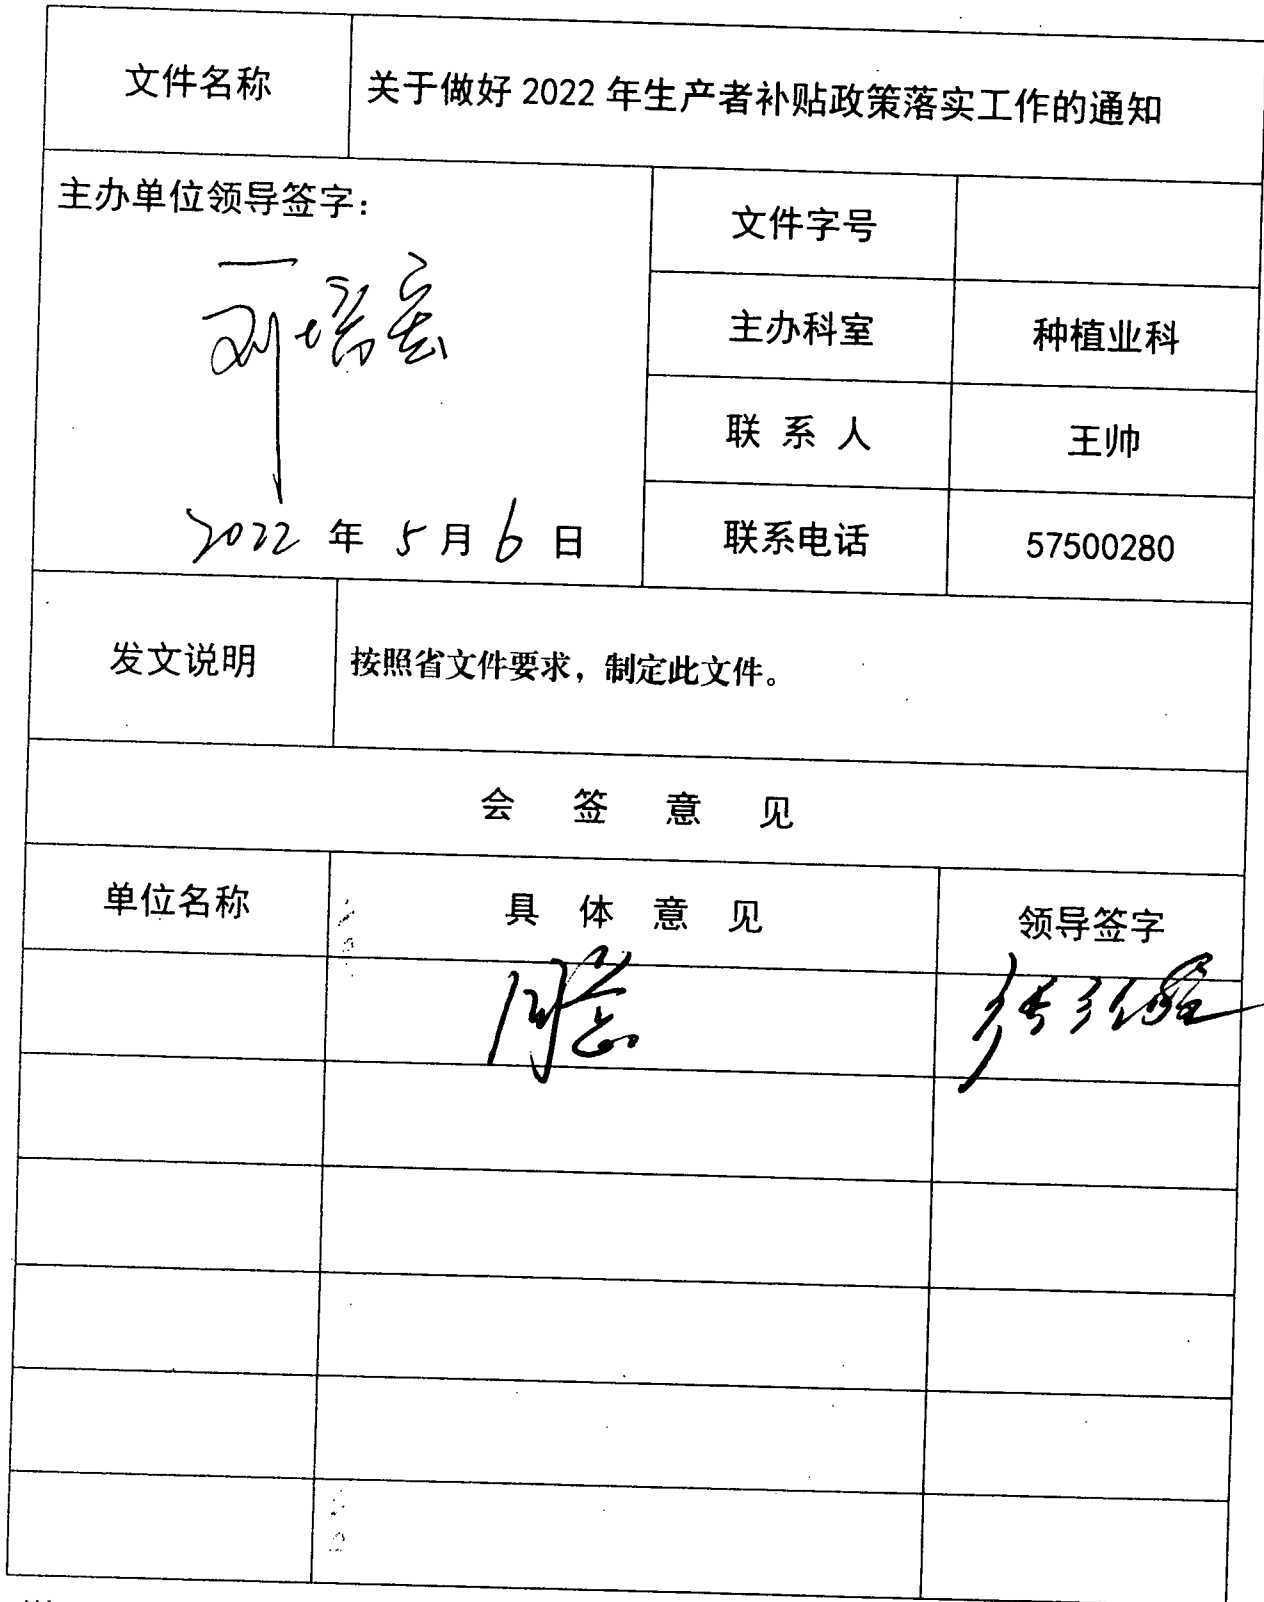 文件名称
关于做好 2022 年生产者补贴政策落实工作的通知
主办单位领导签字：
刘培宏
2022 年 5 月 6 日
文件字号
主办科室
种植业科
联系人
王帅
联系电话
57500280
发文说明
按照省文件要求，制定此文件。
会签意见
单位名称
具体意见
领导签字
同意